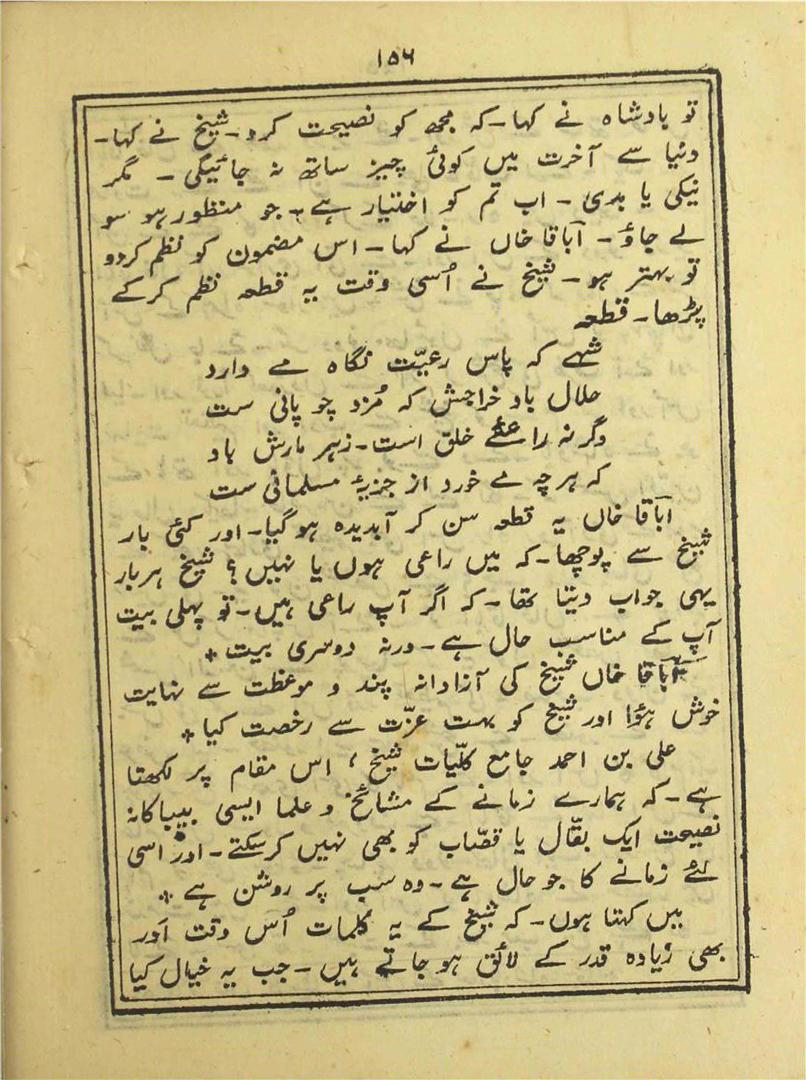 ۱۵۶
تو بادشاہ نے کہا۔ کہ مجھ کو نصیحت کرو۔ شیخ نے کہا۔
دنیا سے آخرت میں کوئی چیز ساتھ نہ جائیگی ۔ مگر
نیکی یا بدی ۔ اب تم کو اختیار ہے ۔ جو منظور ہو سو
لے جاؤ۔ آباقا خاں نے کہا۔ اس مضمون کو نظم کردو
تو بہتر ہو۔ شیخ نے اُسی وقت یہ قطعہ نظم کرکے
پڑھا۔ قطعہ
شہے کہ پاس رعیّت نگاہ مے دارد
حلال باد خراجش کہ مُزد چوپانی ست
وگر نہ راعئے خلق است۔ زہر مارش باد
کہ ہر چہ مے خورد از جزیۂ مسلمانی ست
آباقا خاں یہ قطعہ سن کر آبدیدہ ہوگیا۔ اور کئی بار
شیخ سے پوچھا۔ کہ میں راعی ہوں یا نہیں؟ شیخ ہر بار
یہی جواب دیتا تھا۔ کہ اگر آپ راعی ہیں۔ تو پہلی بیت
آپ کے مناسب حال ہے۔ ورنہ دوسری بیت *
آباقا خاں شیخ کی آزادانہ پند و موعظت سے نہایت
خوش ہؤا اور شیخ کو بہت عزّت سے رخصت کیا *
علی بن احمد جامع کلّیات شیخ ، اس مقام پر لکھتا
ہے۔ کہ ہمارے زمانے کے مشائخ و علما ایسی بیباکانہ
نصیحت ایک بقّال یا قصّاب کو بھی نہیں کرسکتے۔ اور اسی
لئے زمانے کا جو حال ہے۔ وہ سب پر روشن ہے *
میں کہتا ہوں۔ کہ شیخ کے یہ کلمات اُس وقت اَور
بھی زیادہ قدر کے لائق ہو جاتے ہیں ۔ جب یہ خیال کیا